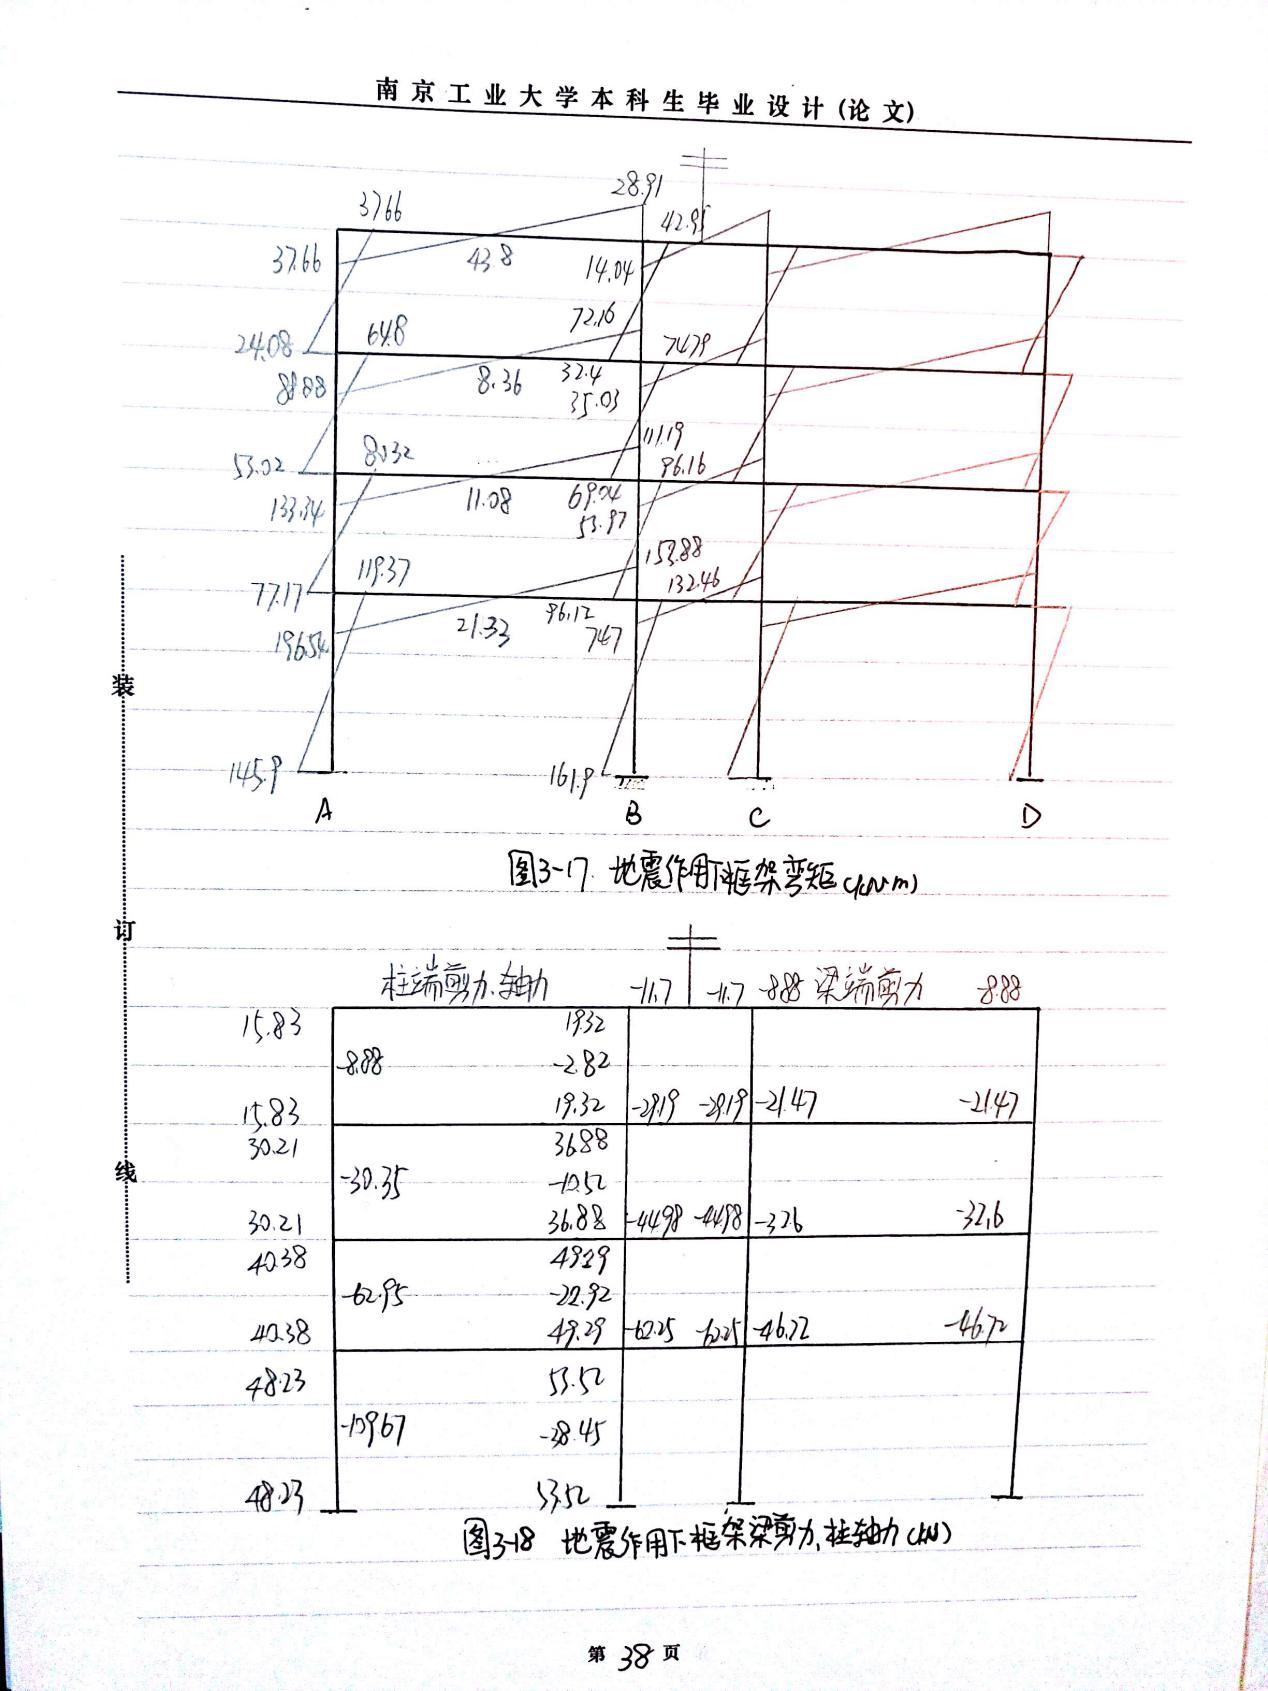 南京工业大学本科生毕业设计(论文)
28.91
37.66
42.95
37.66
43.8
14.04
72.16
64.8
24.08
74.79
88.88
8.36
32.4
35.03
111.19
80.32
53.02
96.16
11.08
69.04
133.34
53.97
153.88
119.37
132.46
77.17
96.12
21.33
74.7
196.54
装
145.9
161.9
A
B
C
D
图3-17 地震作用下框架弯矩(kN·m)
订
柱端剪力、轴力
-11.7
-11.7
-8.88
梁端剪力
-8.88
15.83
19.32
-8.88
-2.82
15.83
19.32
-29.19
-29.19
-21.47
-21.47
30.21
36.88
线
-30.35
-10.52
30.21
36.88
-44.98
-44.98
-32.6
-32.6
40.38
49.29
-62.95
-22.92
40.38
49.29
-62.25
-62.25
-46.72
-46.72
48.23
53.52
-109.67
-38.45
48.23
53.52
图3-18 地震作用下框架梁剪力、柱轴力(kN)
第38页